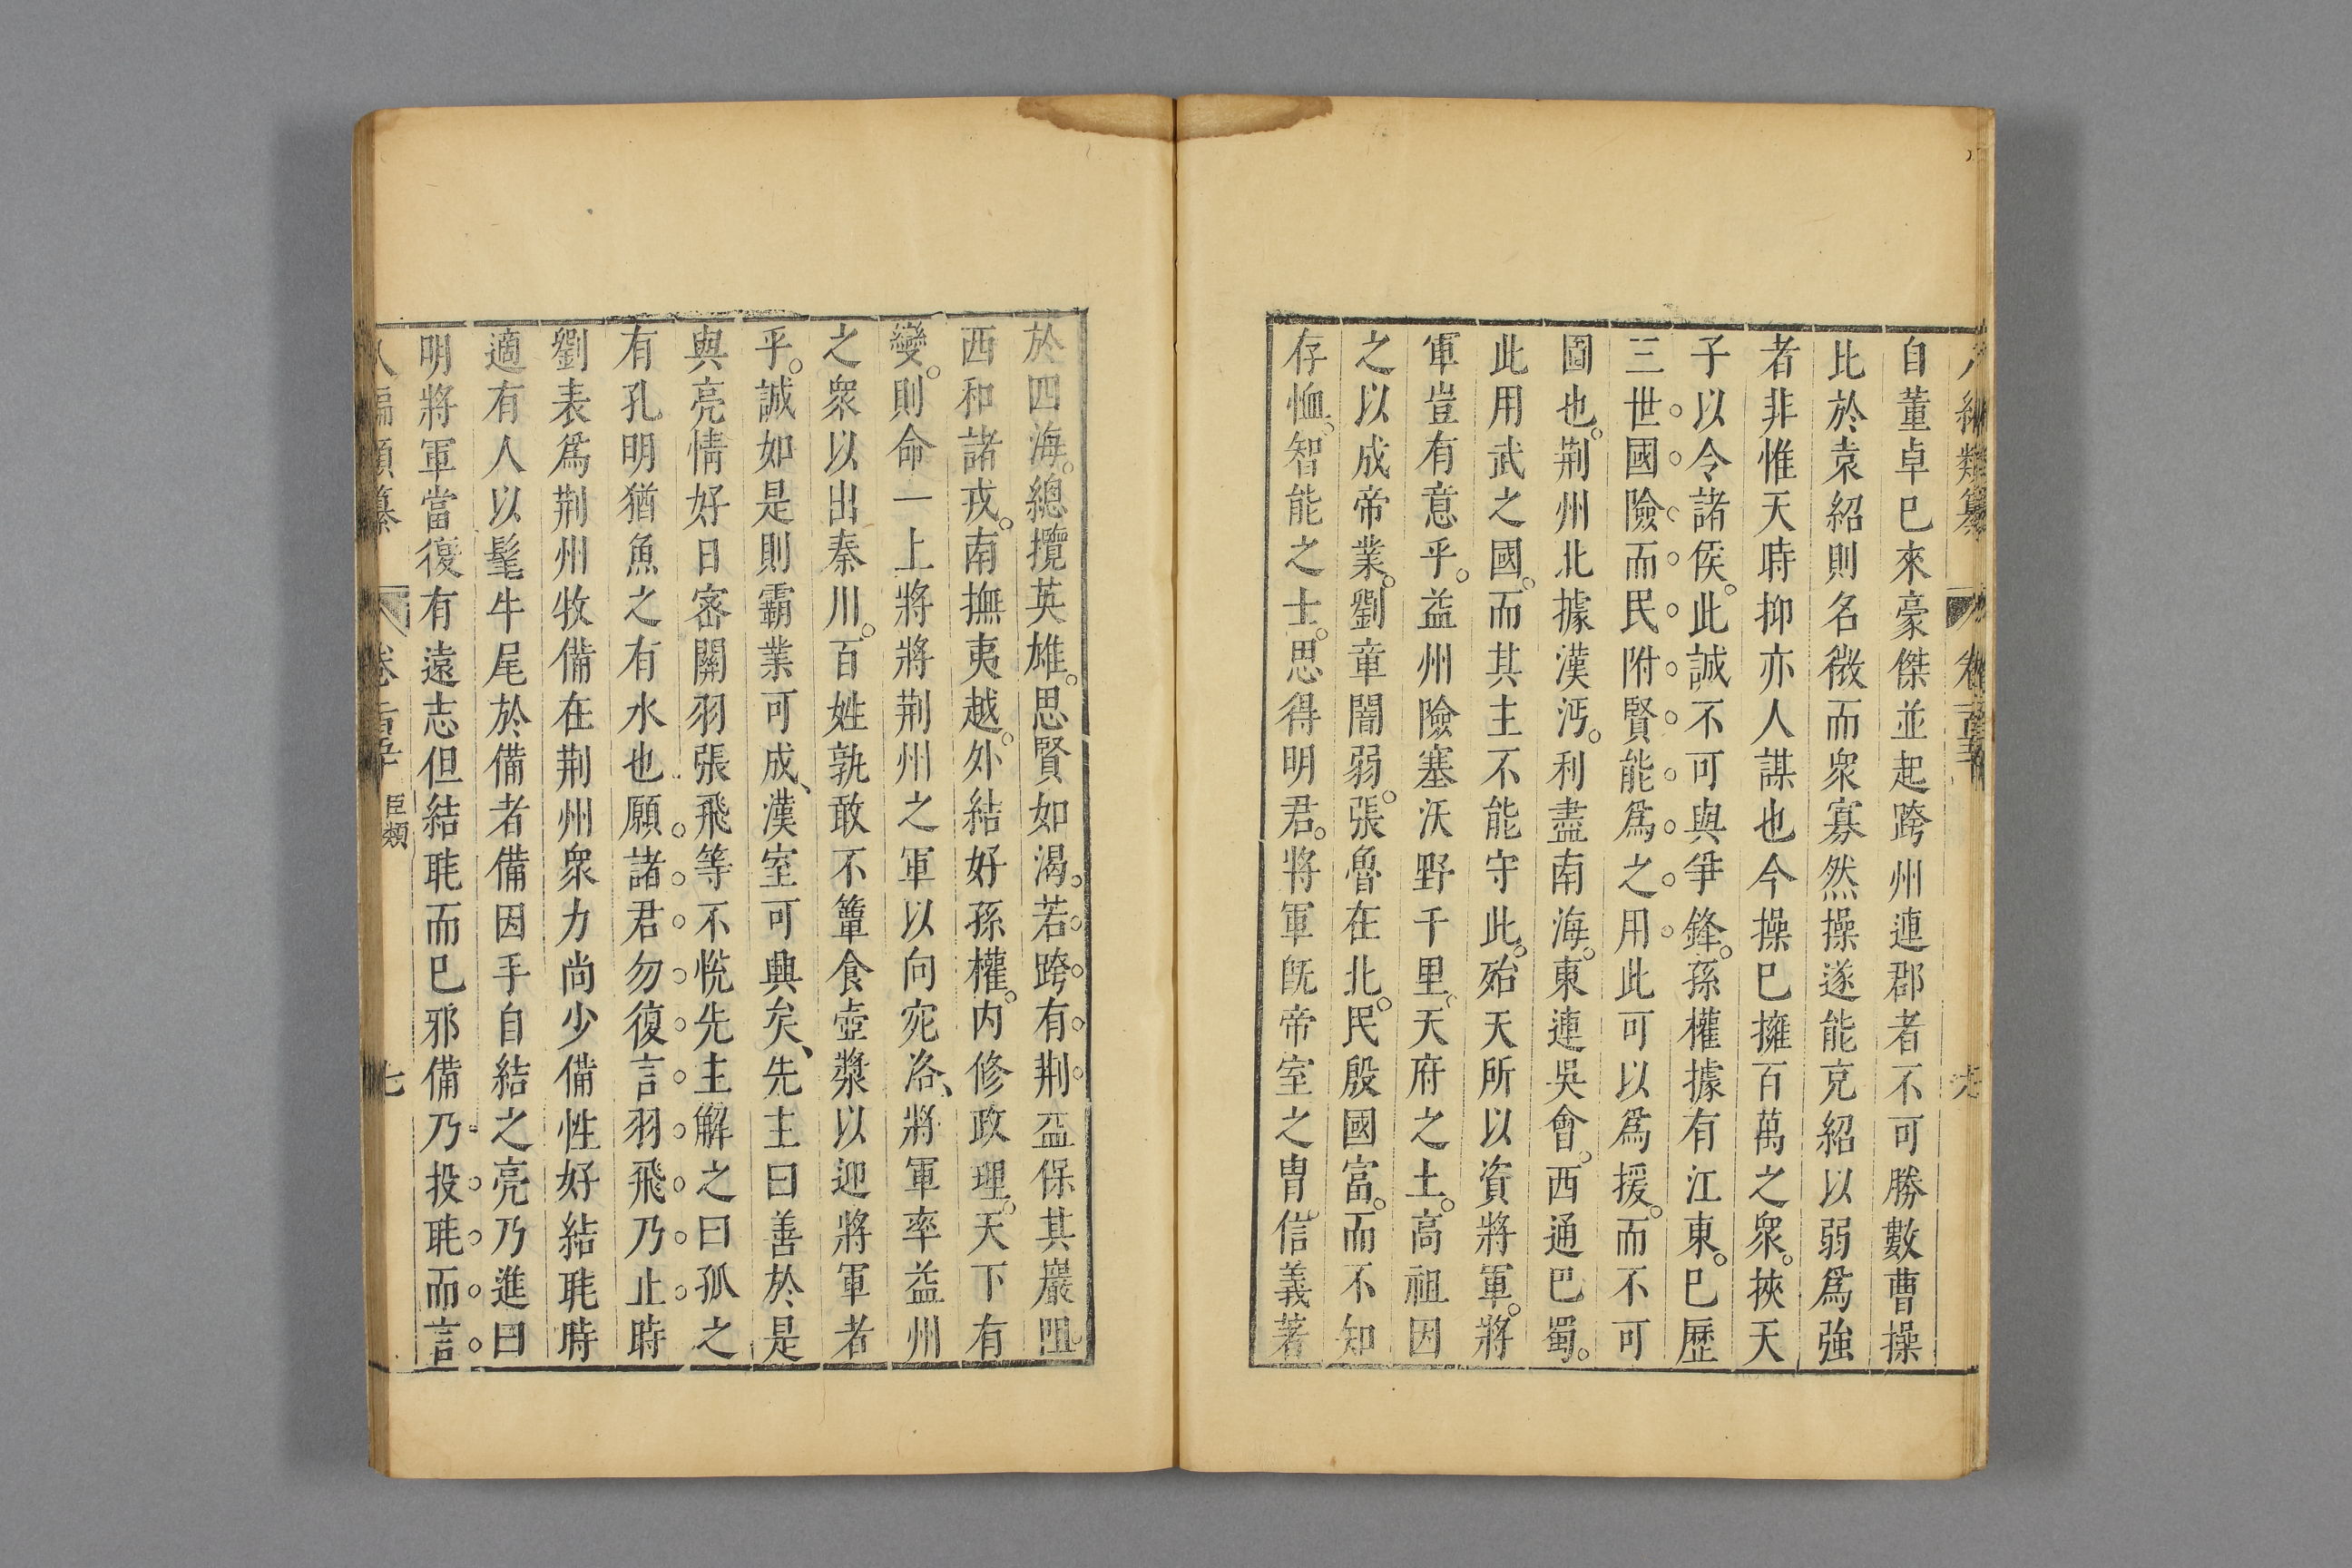 自董卓已來豪傑並起跨州連郡者不可勝數曹操
比於袁紹則名微而衆寡然操遂能克紹以弱爲強
者非惟天時抑亦人謀也今操已擁百萬之衆。挾天
子以令諸侯。此誠不可與爭鋒。孫權據有江東。已歷
三世國險而民附賢能爲之用此可以爲援。而不可
圖也。荆州北據漢沔。利盡南海。東連吳會。西通巴蜀。
此用武之國。而其主不能守此。殆天所以資將軍。將
軍豈有意乎。益州險塞沃野千里。天府之土。高祖因
之以成帝業。劉璋闇弱。張魯在北。民殷國富。而不知
存恤。智能之士。思得明君。將軍旣帝室之胄信義著
於四海。總攬英雄。思賢如渴。若跨有荆益保其巖阻
西和諸戎。南撫夷越。外結好孫權。内修政理。天下有
變。則命一上將將荆州之軍以向宛洛、將軍率益州
之衆以出秦川。百姓孰敢不簞食壺漿以迎將軍者
乎。誠如是則霸業可成、漢室可興矣、先主曰善於是
與亮情好日密關羽張飛等不悅先主解之曰孤之
有孔明猶魚之有水也願諸君勿復言羽飛乃止時
劉表爲荆州牧備在荆州衆力尚少備性好結毦時
適有人以髦牛尾於備者備因手自結之亮乃進曰
明將軍當復有遠志但結毦而已邪備乃投毦而言
八編類纂 卷一百五十 臣類 七